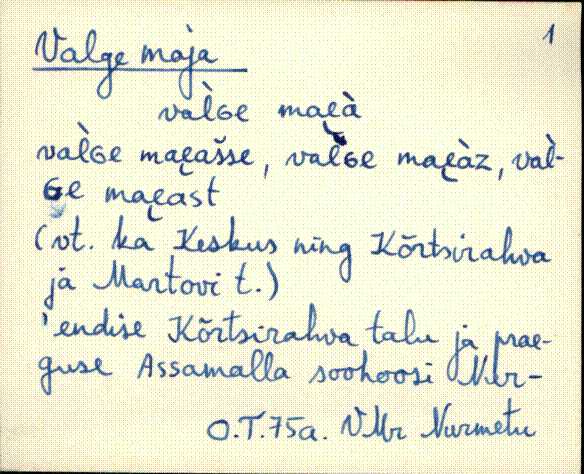 1
Valge maja
val̀ɢe mae̮à
val̀ɢe mae̮ašse, val̀ɢe mae̮àz, val̀-
ɢe mae̮ast
(vt. ka Keskus ning Kõrtsirahva
ja Martovi t.)
'endise Kõrtsirahva talu ja prae-
guse Assamalla soohoosi
O.T.75a. VMr Nurmetu